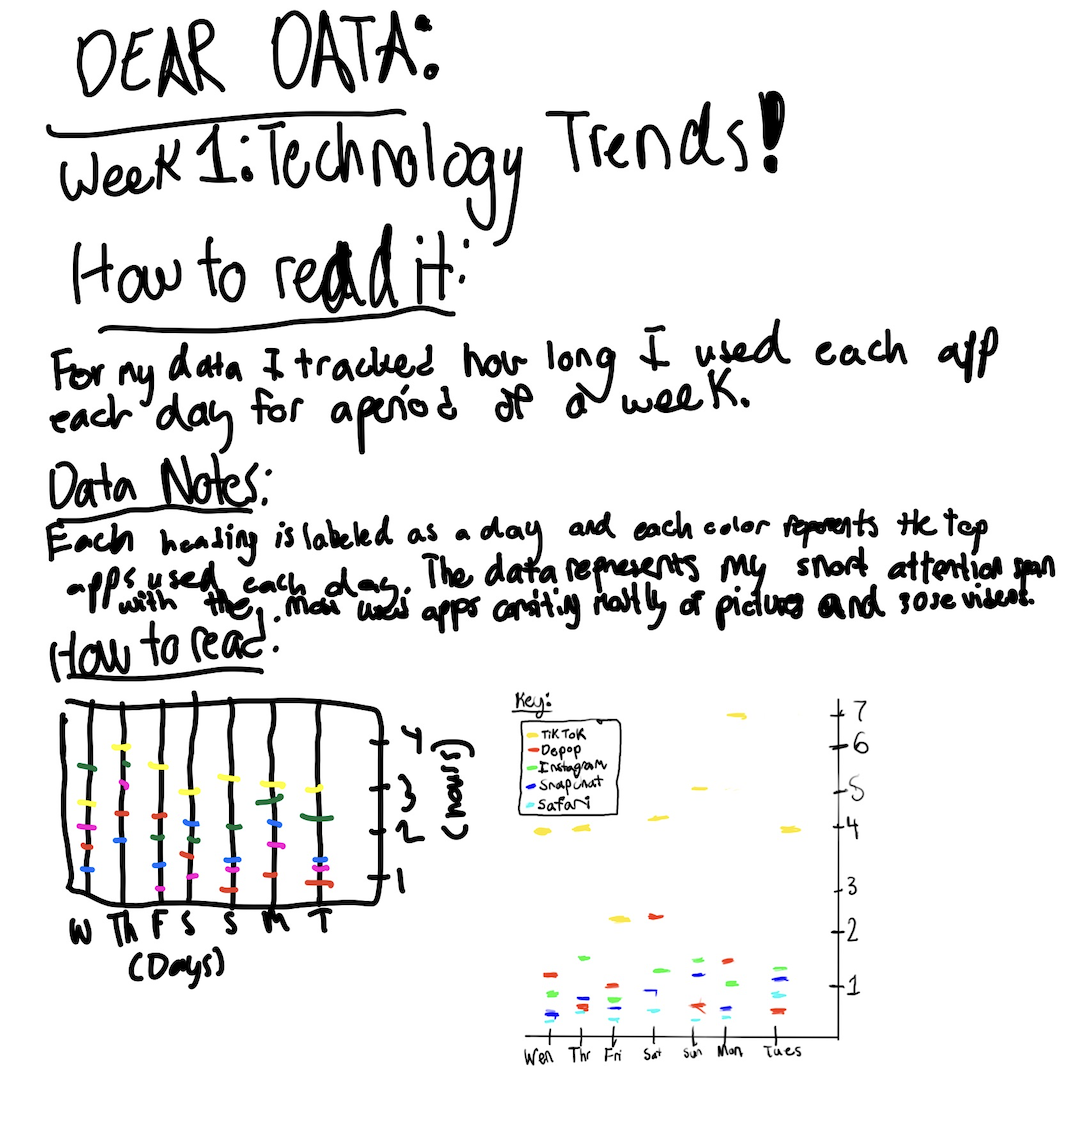 DEAR DATA:
Week 1: Technology Trends!
How to read it:
For my data I tracked how long I used each app
each day for a period of a week.
Data Notes:
Each heading is labeled as a day and each color reprents the top
apps used each day. The data represents my short attention span
with the most used apps mostly of pictures and 30se videos.
How to read:
4
3
2
1
(hours)
W Th F S S M T
(Days)
Key:
TikTok
Depop
Instagram
Snapchat
Safari
7
6
5
4
3
2
1
Wen Thr Fri Sat Sun Mon Tues